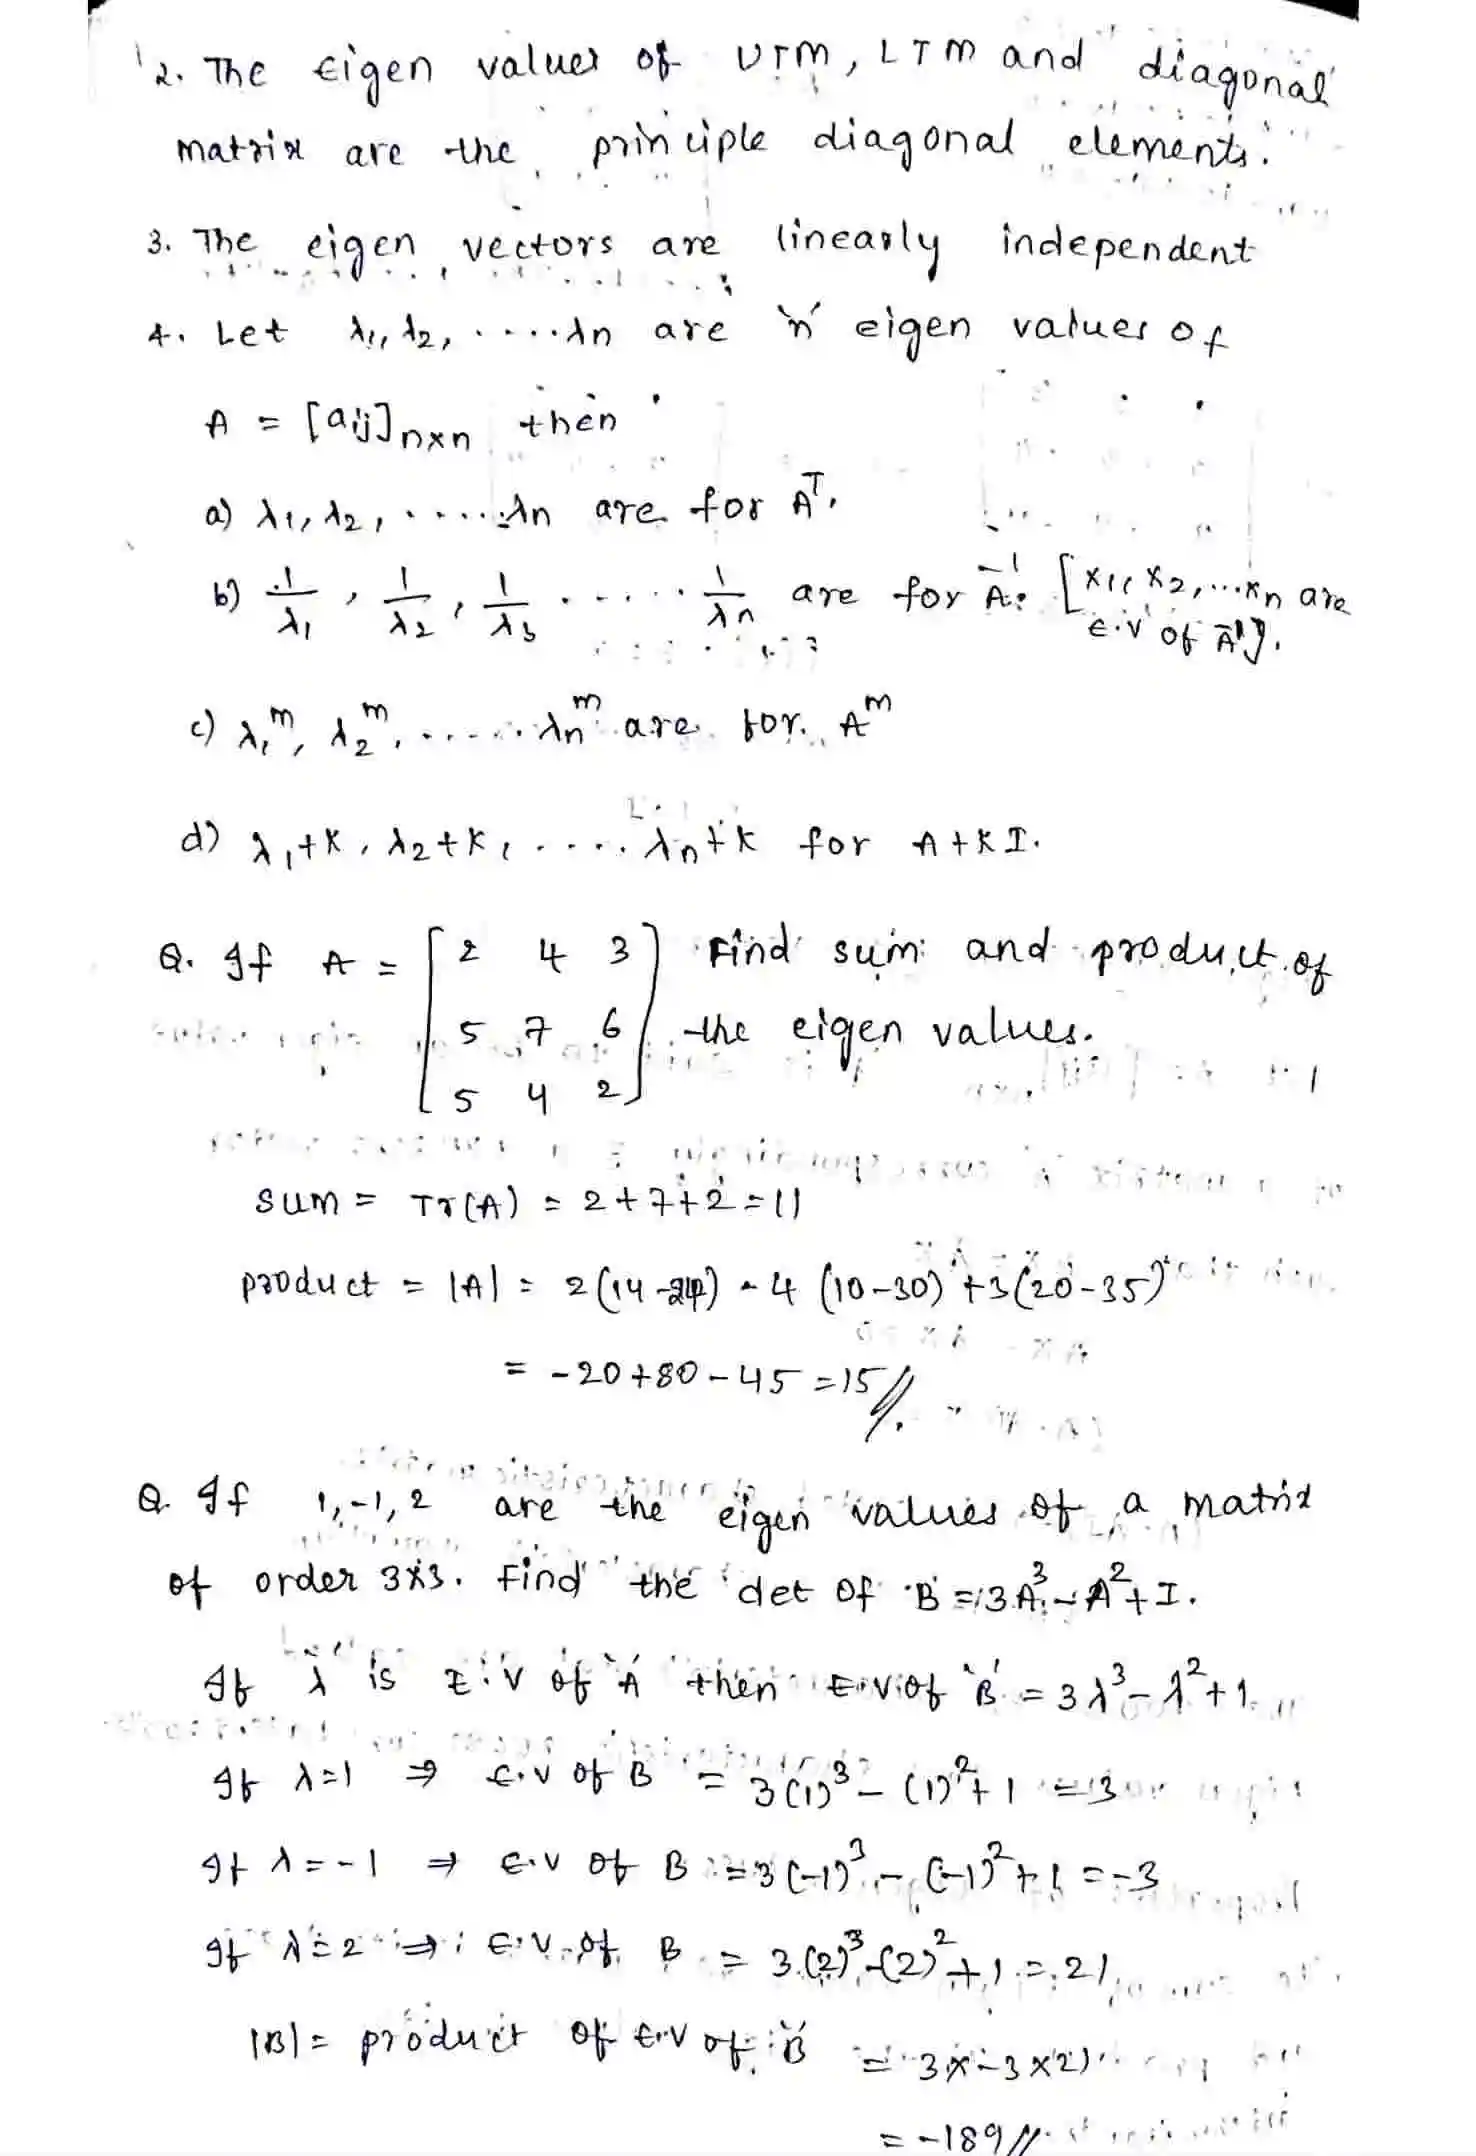 2. The Eigen values of UTM, LTM and diagonal
matrix are the principle diagonal elements.
3. The eigen vectors are linearly independent
4. Let λ1, λ2, .....λn are 'n' eigen values of
A = [aij]n×n then
a) λ1, λ2, .....λn are for A^T.
b) 1/λ1, 1/λ2, 1/λ3 ...... 1/λn are for A^-1. [x1, x2, ...xn are
E.V of A^-1].
c) λ1^m, λ2^m, ......λn^m are for A^m
d) λ1+K, λ2+K, ..... λn+K for A+KI.
Q. If A = [2 4 3 Find sum and product of
5 7 6 the eigen values.
5 4 2]
sum = Tr(A) = 2+7+2 = 11
product = |A| = 2(14-24) - 4 (10-30) +3(20-35)
= -20+80-45 = 15//.
Q. If 1,-1, 2 are the eigen values of a matrix
of order 3×3. Find the det of B = 3A^3 - A^2 + I.
If λ is E.V of 'A' then E.V of 'B' = 3λ^3 - λ^2 + 1
If λ=1 ⇒ E.V of B = 3(1)^3 - (1)^2 + 1 = 3
If λ=-1 ⇒ E.V of B = 3(-1)^3 - (-1)^2 + 1 = -3
If λ=2 ⇒ E.V of B = 3.(2)^3 - (2)^2 + 1 = 21
|B| = product of E.V of 'B' = 3×-3×21
= -189//